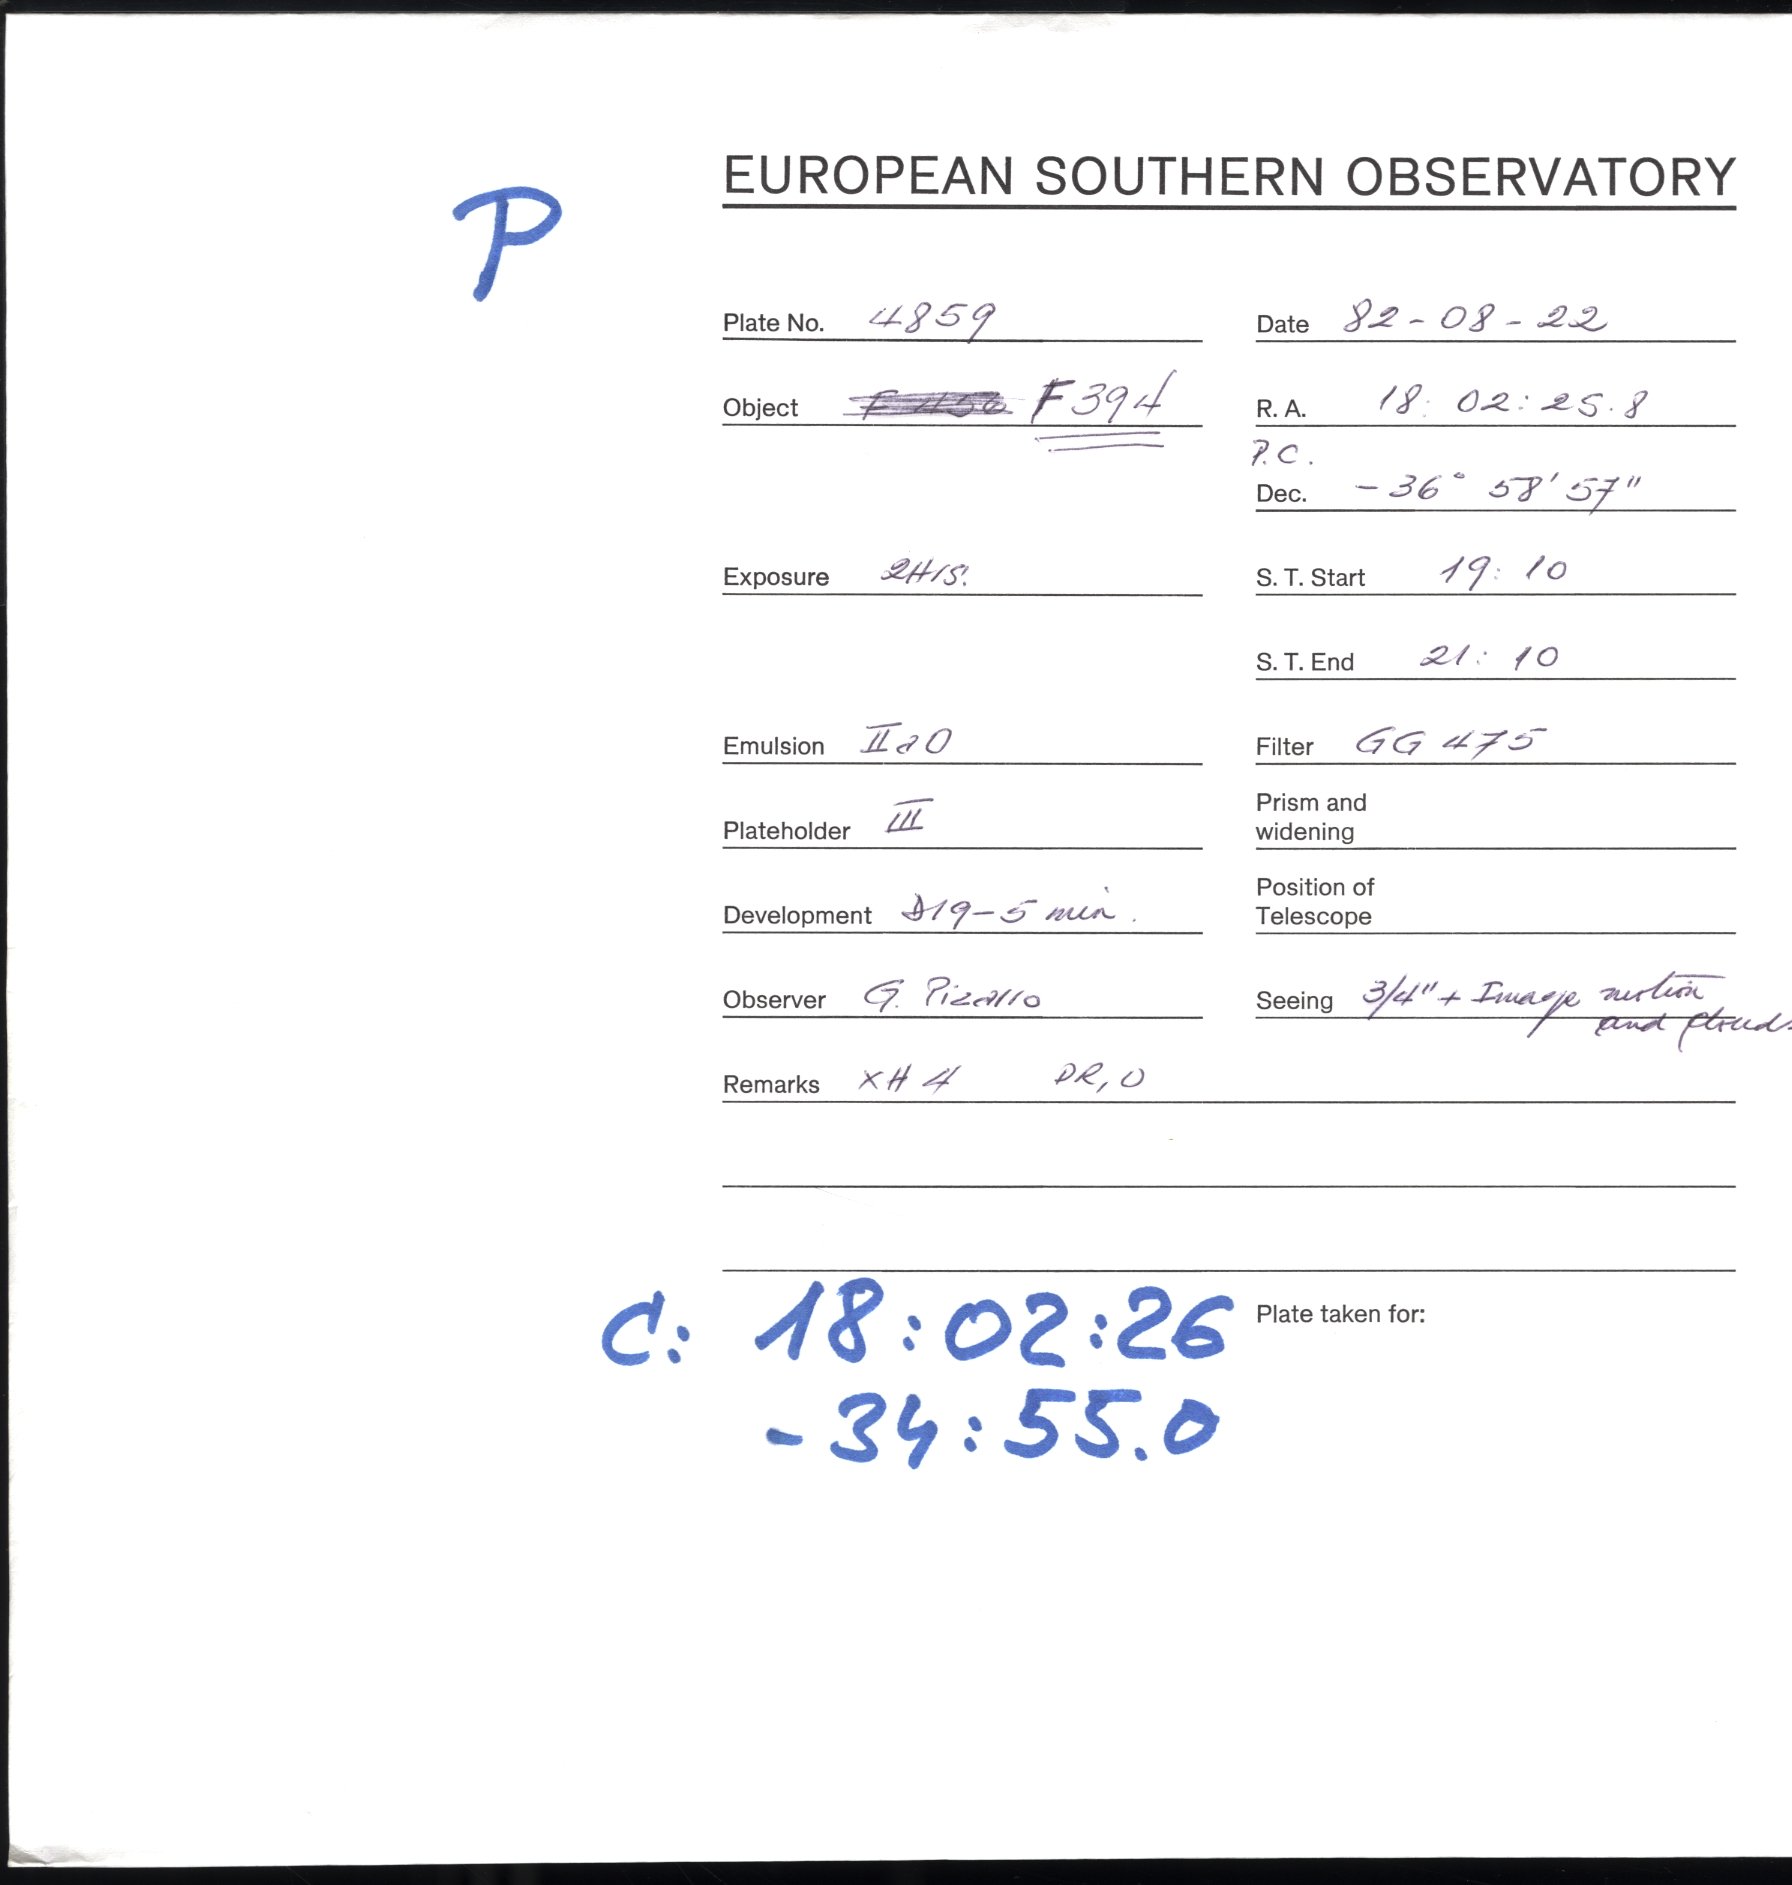 P
EUROPEAN SOUTHERN OBSERVATORY
Plate No. 4859 Date 82-08-22
Object F394 R. A. 18: 02: 25.8
P.C.
Dec. - 36° 58' 57"
Exposure 2H15. S. T. Start 19: 10
S. T. End 21: 10
Emulsion IIaO Filter GG 475
Plateholder III Prism and
widening
Development D19-5 min. Position of
Telescope
Observer G. Pizarro Seeing 3/4" + Image motion
and clouds
Remarks XH 4 DR, O
C: 18:02:26 Plate taken for:
-34:55.0